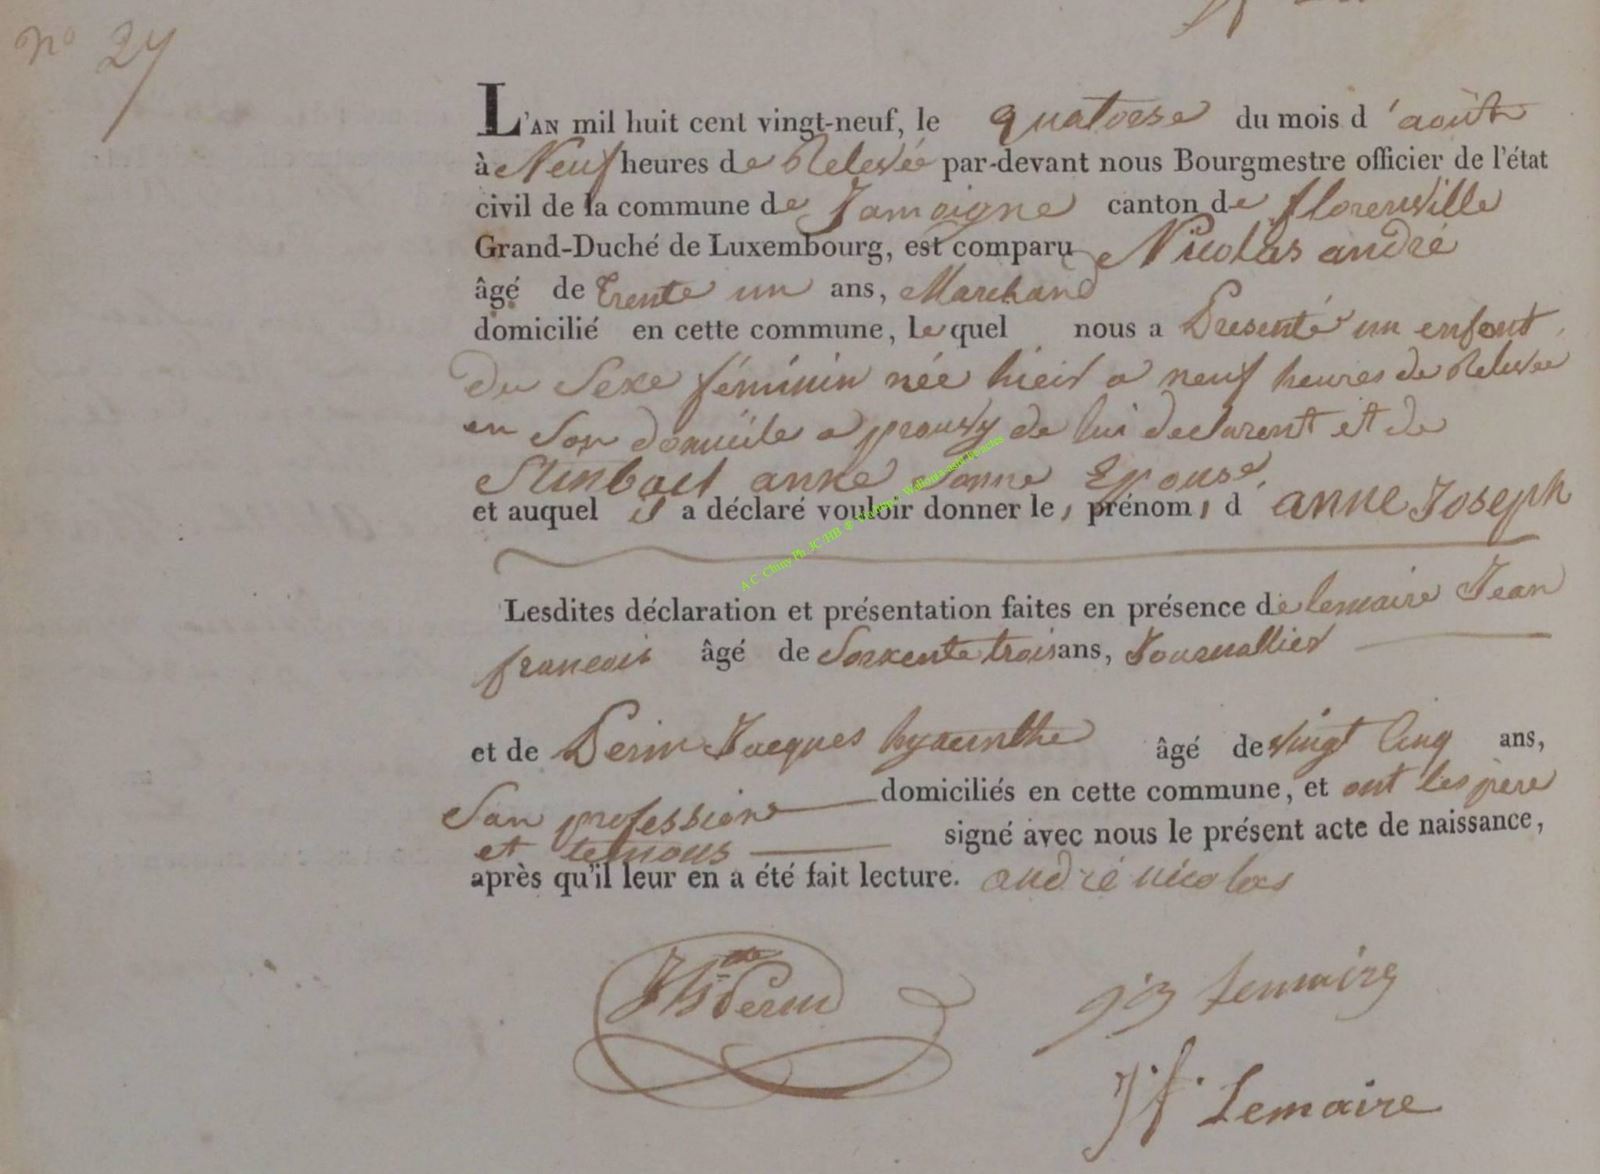 n° 27
L'AN mil huit cent vingt-neuf, le quatorse du mois d'août
à Neuf heures de Relevée par-devant nous Bourgmestre officier de l'état
civil de la commune de Jamoigne canton de florenville
Grand-Duché de Luxembourg, est comparu Nicolas andré
âgé de trente un ans, Marchand
domicilié en cette commune, lequel nous a Presenté un enfant
du Sexe féminin née hier a neuf heures de Relevée
en Son domicile a prouvy de lui declarent et de
anne Epouse,
et auquel il a déclaré vouloir donner le, prénom, d'anne Joseph
Lesdites déclaration et présentation faites en présence de lemaire Jean
francois âgé de Soixente trois ans, Journallier
et de Perin Jacques hyacinthe âgé de vingt Cinq ans,
San profession domiciliés en cette commune, et ont les père
et temous signé avec nous le présent acte de naissance,
après qu'il leur en a été fait lecture. andré nicolas
Perin
Lemaire